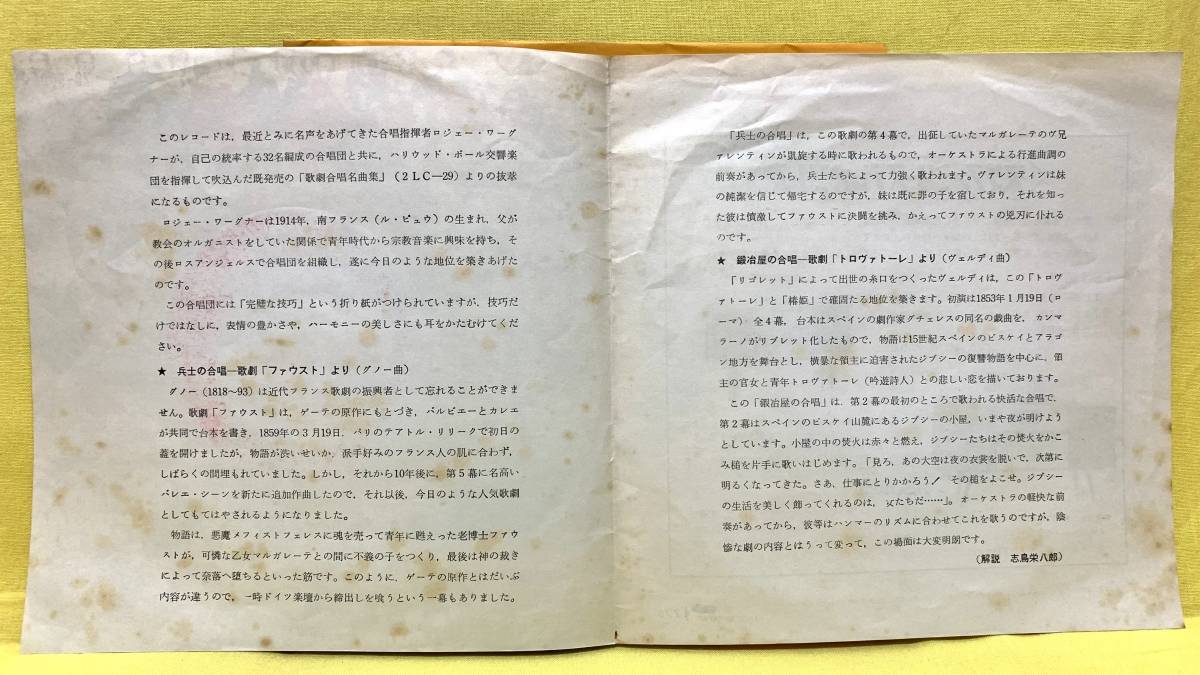 このレコードは，最近とみに名声をあげてきた合唱指揮者ロジェー・ワーグ
ナーが，自己の統率する32名編成の合唱団と共に，ハリウッド・ボール交響楽
団を指揮して吹込んだ既発売の「歌劇合唱名曲集」（2LC—29）よりの抜萃
になるものです。
ロジェー・ワーグナーは1914年，南フランス（ル・ピュウ）の生まれ，父が
教会のオルガニストをしていた関係で青年時代から宗教音楽に興味を持ち，そ
の後ロスアンジェルスで合唱団を組織し，遂に今日のような地位を築きあげた
のです。
この合唱団には「完璧な技巧」という折り紙がつけられていますが，技巧だ
けではなしに，表情の豊かさや，ハーモニーの美しさにも耳をかたむけてくだ
さい。
★ 兵士の合唱—歌劇「ファウスト」より（グノー曲）
グノー（1818〜93）は近代フランス歌劇の振興者として忘れることができま
せん。歌劇「ファウスト」は，ゲーテの原作にもとづき，バルビエーとカレエ
が共同で台本を書き，1859年の3月19日，パリのテアトル・リリークで初日の
蓋を開けましたが，物語が渋いせいか，派手好みのフランス人の肌に合わず，
しばらくの間埋もれていました。しかし，それから10年後に，第5幕に名高い
バレエ・シーンを新たに追加作曲したので，それ以後，今日のような人気歌劇
としてもてはやされるようになりました。
物語は，悪魔メフィストフェレスに魂を売って青年に甦えった老博士ファウ
ストが，可憐な乙女マルガレーテとの間に不義の子をつくり，最後は神の裁き
によって奈落へ堕ちるといった筋です。このように，ゲーテの原作とはだいぶ
内容が違うので，一時ドイツ楽壇から締出しを喰うという一幕もありました。
「兵士の合唱」は，この歌劇の第4幕で，出征していたマルガレーテのヴ兄
ァレンティンが凱旋する時に歌われるもので，オーケストラによる行進曲調の
前奏があってから，兵士たちによって力強く歌われます。ヴァレンティンは妹
の純潔を信じて帰宅するのですが，妹は既に罪の子を宿しており，それを知っ
た彼は憤激してファウストに決闘を挑み，かえってファウストの兇刃に仆れる
のです。
★ 鍛冶屋の合唱—歌劇「トロヴァトーレ」より（ヴェルディ曲）
「リゴレット」によって出世の糸口をつくったヴェルディは，この「トロヴ
ァトーレ」と「椿姫」で確固たる地位を築きます。初演は1853年1月19日（ロ
ーマ） 全4幕，台本はスペインの劇作家グチェレスの同名の戯曲を，カンマ
ラーノがリブレット化したもので，物語は15世紀スペインのビスケイとアラゴ
ン地方を舞台とし，横暴な領主に迫害されたジプシーの復讐物語を中心に，領
主の官女と青年トロヴァトーレ（吟遊詩人）との悲しい恋を描いております。
この「鍛冶屋の合唱」は，第2幕の最初のところで歌われる快活な合唱で，
第2幕はスペインのビスケイ山麓にあるジプシーの小屋，いまや夜が明けよう
としています。小屋の中の焚火は赤々と燃え，ジプシーたちはその焚火をかこ
み槌を片手に歌いはじめます。「見ろ，あの大空は夜の衣裳を脱いで，次第に
明るくなってきた。さあ，仕事にとりかかろう！ その槌をよこせ。ジプシー
の生活を美しく飾ってくれるのは，女たちだ……」。オーケストラの軽快な前
奏があってから，彼等はハンマーのリズムに合わせてこれを歌うのですが，陰
惨な劇の内容とはうって変って，この場面は大変明朗です。
（解説 志鳥栄八郎）